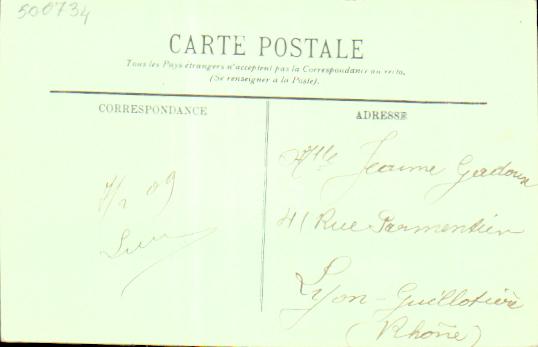 500734
CARTE POSTALE
Tous les Pays étrangers n'acceptent pas la Correspondance au recto.
(Se renseigner à la Poste).
CORRESPONDANCE
ADRESSE
Mlle Jeanne Gadoux
41 Rue Parmentier
Lyon-Guillotière
(Rhône)
09